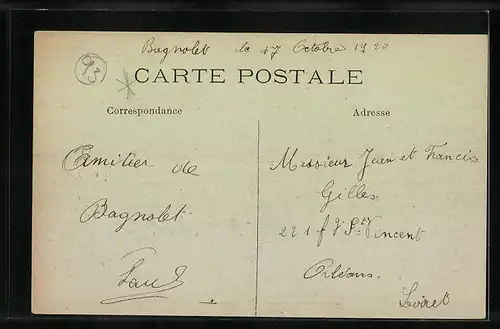 Bagnolet le 17 Octobre 1920
93
CARTE POSTALE
Correspondance
Adresse
Amitiés de
Bagnolet
Messieur Jean et Francis
Gilles
221 fg St Vincent
Orléans.
Loiret